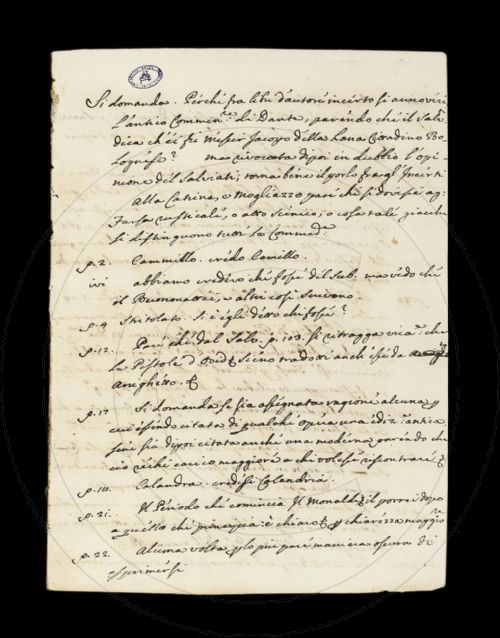 Si domanda. Perchè fra libri d'autore incerto si annoveri
l'antico Commen.re di Dante, parendo che il Salv.
dica ch'ei fu Messer Jacopo della Lana Cittadino Bo-
lognese? Ma rivocata dipoi in dubbio l'opi-
nione del Salviati; torna bene il porlo fra gl'Incerti
Alla Catrina, o Mogliazzo pare che si dovesse ag:
Farsa rusticale, o atto scenico, o cosa tale, giacchè
si distinguono tutte le Commed.e
p. 2. Cammillo. credo Camillo.
ivi abbiamo creduto che fosse del Sab. ma vedo che
il Buommattei, e altri così scrivono
p. 4 Stritolato. Si cegli detto chi fosse?
p. 12. Pare che dal Salv. p. 103. si ritragga che
le Pistole d'Ovid. sieno tradotte anch'esse da
Arrighetto.
p. 17 Si domanda se sia assegnata ragione alcuna p
cui essendo citata di qualche opera una ediz. antica
sene sia dipoi citata anche una moderna parendo che
ciò rechi carico maggiore a chi volesse riscontrare
p. 10. Calandra. credesi Calandria.
p. 21. Il Periodo che comincia Il Monald. il porrei dopo
a quello che principia: è chiaro p chiarezza maggio
p. 22. Alcuna volta p lo più pare maniera oscura di
esprimersi